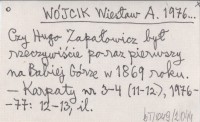 WÓJCIK Wiesław A. 1976...
Czy Hugo Zapałowicz był
rzeczywiście po raz pierwszy
na Babiej Górze w 1869 roku.
— Karpaty nr 3-4 (11-12), 1976-
-77: 12-13, il.